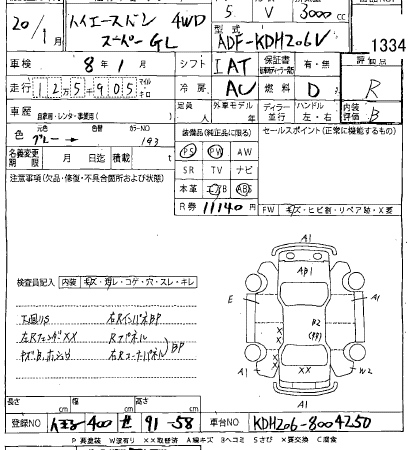 20/1月 ハイエースバン 4WD 5 V 3000 cc
スーパーGL 型式 ADF-KDH206V
1334
車検 8年1月 シフト IAT 保証書 有・無 燃料 評価点 R
走行 125905 マイル キロ 冷房 AC 燃料 D 内装 B
車歴 自家用・レンタ・事業用( ) 定員 人 外車モデル 年 ディーラー 並行 ハンドル 左・右
色 元色 グレー → 色替 カラーNO 193 装備品(純正品に限る) セールスポイント(正常に機能するもの)
名義変更期限 月 日迄 積載 t PS PW AW
注意事項(欠品・修復・不具合箇所および状態) SR TV ナビ
本革 エアB ABS
R券 11140円 FW キズ・ヒビ割・リペア跡・X要
A1
AP1
検査員記入 内装 キズ・汚レ・コゲ・穴・スレ・キレ
E A1
下回りS 右RインパネBP
左RフェンダXX Rパネル
右Rコーナーパネル BP
W2
XX
W2
A1
長さ cm 幅 cm 高さ cm
登録NO 400 せ 91-58 車台NO KDH206-8004250
P 要塗装 W波有り XX取替済 A線キズ Bヘコミ Sさび X要交換 C腐食